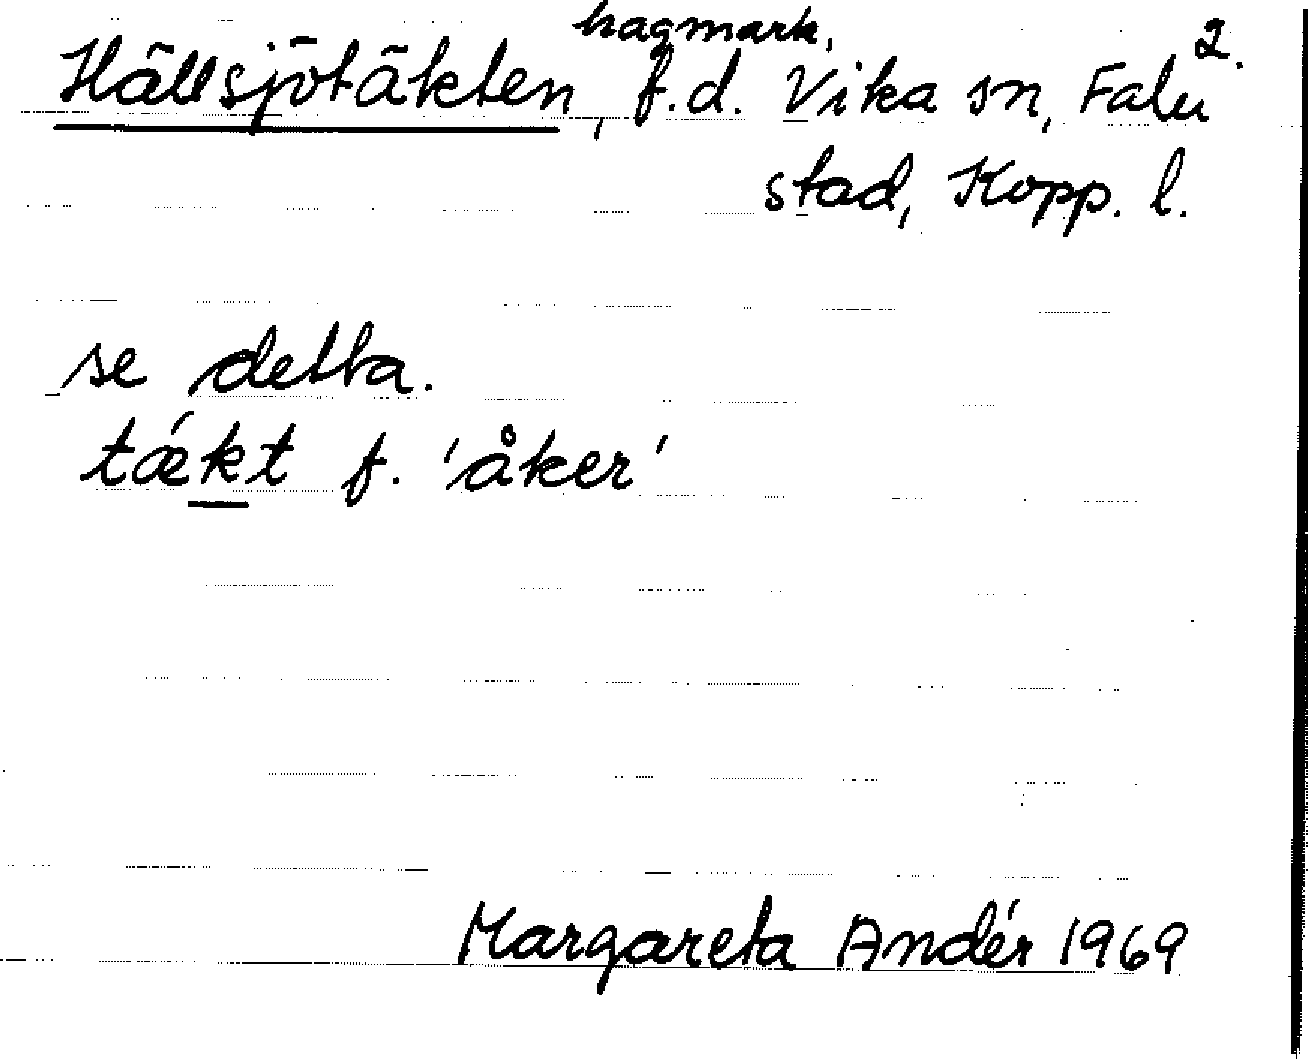 hagmark, 2.
Hällsjötäkten, f.d. Vika sn, Falu
stad, Kopp. l.
se detta.
tǽkt f. 'åker'
Margareta Andér 1969